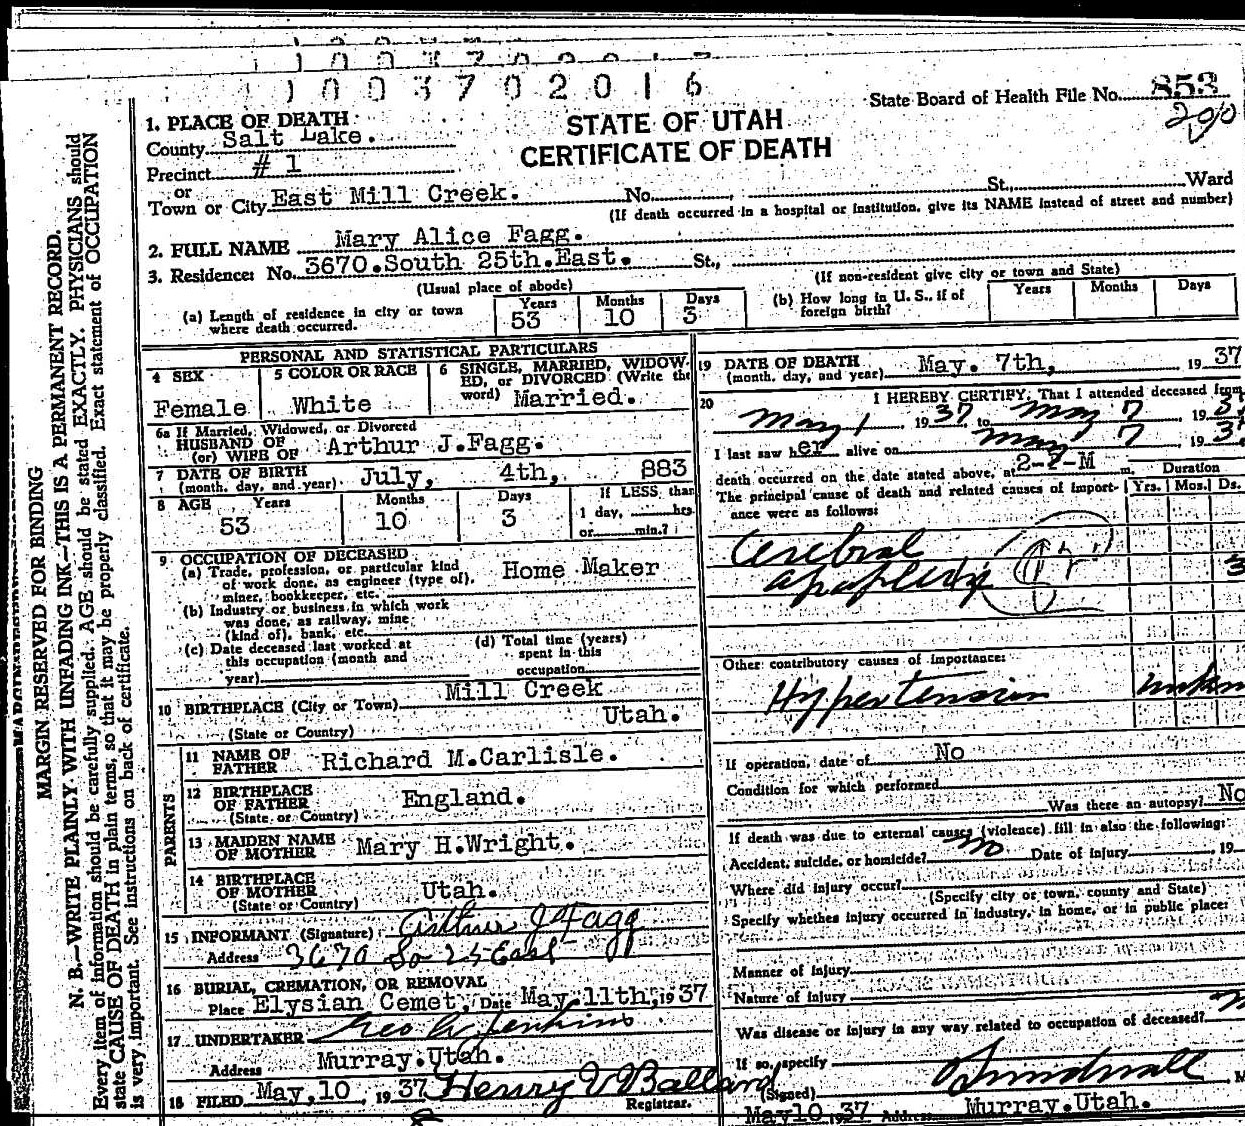 1003702016
State Board of Health File No. 853
200
STATE OF UTAH
CERTIFICATE OF DEATH
1. PLACE OF DEATH
County Salt Lake.
Precinct # 1
or
Town or City East Mill Creek. No. St., Ward
(If death occurred in a hospital or institution, give its NAME instead of street and number)
2. FULL NAME Mary Alice Fagg.
3. Residence: No. 3670.South 25th.East. St.,
(Usual place of abode) (If non-resident give city or town and State)
(a) Length of residence in city or town where death occurred. Years 53 Months 10 Days 3
(b) How long in U. S., if of foreign birth? Years Months Days
PERSONAL AND STATISTICAL PARTICULARS
4 SEX Female
5 COLOR OR RACE White
6 SINGLE, MARRIED, WIDOWED, or DIVORCED (Write the word) Married.
6a If Married, Widowed, or Divorced
HUSBAND OF
(or) WIFE OF Arthur J.Fagg.
7 DATE OF BIRTH
(month, day, and year) July, 4th, 883
8 AGE Years 53 Months 10 Days 3 If LESS than
1 day, hrs
or min.?
9 OCCUPATION OF DECEASED
(a) Trade, profession, or particular kind
of work done, as engineer (type of),
miner, bookkeeper, etc. Home Maker
(b) Industry or business in which work
was done, as railway, mine
(kind of), bank, etc.
(c) Date deceased last worked at
this occupation (month and
year)
(d) Total time (years)
spent in this
occupation
10 BIRTHPLACE (City or Town) Mill Creek
(State or Country) Utah.
PARENTS
11 NAME OF
FATHER Richard M.Carlisle.
12 BIRTHPLACE
OF FATHER England.
(State or Country)
13 MAIDEN NAME
OF MOTHER Mary H.Wright.
14 BIRTHPLACE
OF MOTHER Utah.
(State or Country)
15 INFORMANT (Signature) Arthur J Fagg
Address 3670 So 25 East
16 BURIAL, CREMATION, OR REMOVAL
Place Elysian Cemet, Date May.11th, 1937
17 UNDERTAKER Geo A Jenkins.
Address Murray.Utah.
18 FILED May,10, 1937. Henry V Balland
Registrar.
19 DATE OF DEATH
(month, day, and year) May. 7th, 1937
20 I HEREBY CERTIFY, That I attended deceased from
May 1 1937 to May 7 1937
I last saw her alive on May 7 193
death occurred on the date stated above, at m.
The principal cause of death and related causes of importance were as follows:
Duration
Yrs. Mos. Ds.
Cerebral
apoplexy 3
Other contributory causes of importance:
Hypertension
If operation, date of No
Condition for which performed
Was there an autopsy? No
If death was due to external causes (violence) fill in also the following:
Accident, suicide, or homicide? no Date of injury 19
Where did injury occur?
(Specify city or town, county and State)
Specify whether injury occurred in industry, in home, or in public place:
Manner of Injury
Nature of Injury
Was disease or injury in any way related to occupation of deceased?
If so, specify
(Signed)
May10 1937 Address Murray.Utah.
MARGIN RESERVED FOR BINDING
N. B.—WRITE PLAINLY WITH UNFADING INK—THIS IS A PERMANENT RECORD.
Every item of information should be carefully supplied. AGE should be stated EXACTLY. PHYSICIANS should
state CAUSE OF DEATH in plain terms, so that it may be properly classified. Exact statement of OCCUPATION
is very important. See instructions on back of certificate.